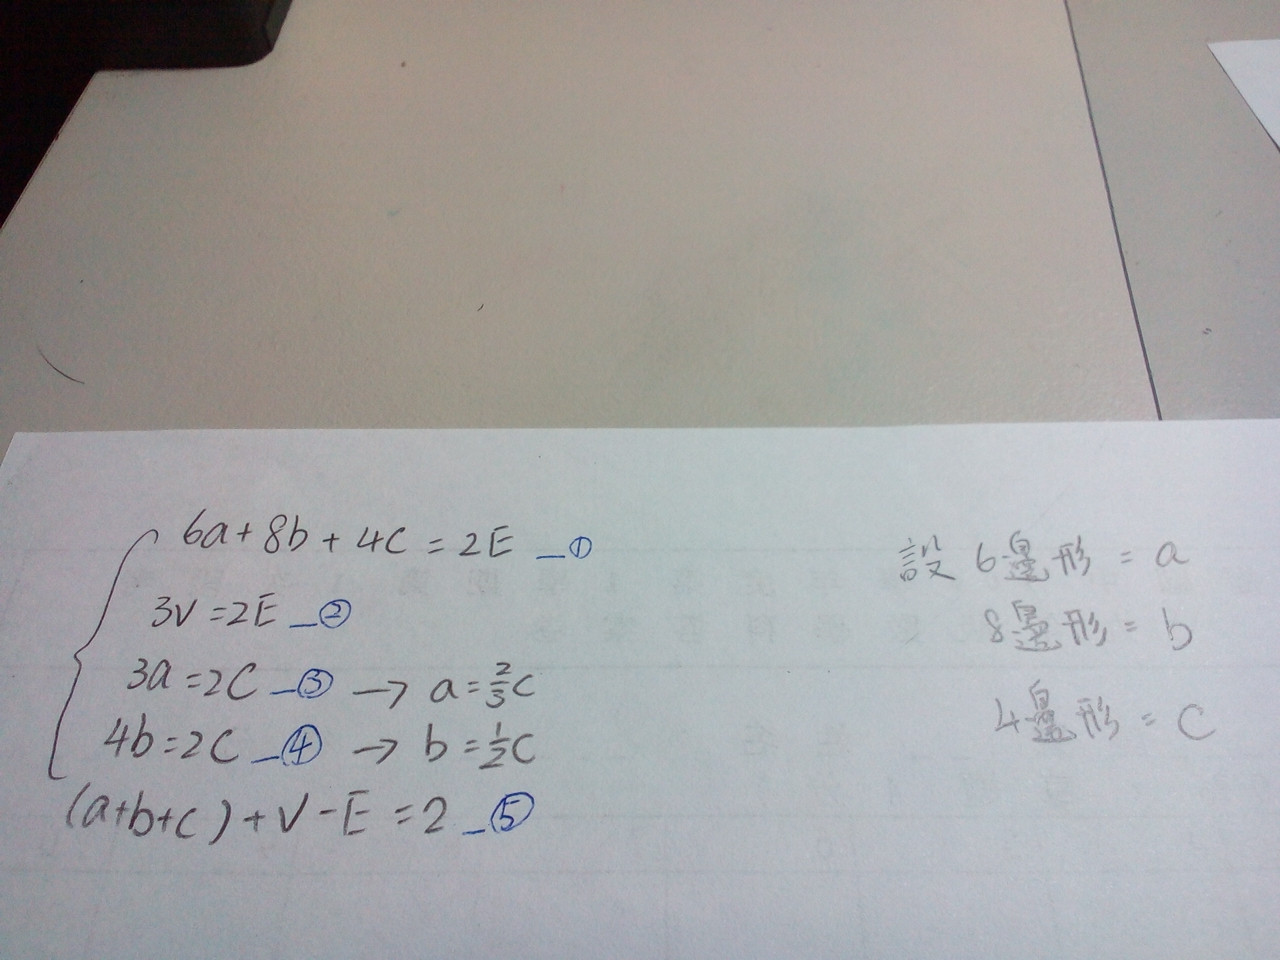 6a+8b+4c=2E —①
3V=2E —②
3a=2C —③ → a=⅔c
4b=2C —④ → b=½c
(a+b+c)+V-E=2 —⑤
設 6邊形 = a
8邊形 = b
4邊形 = C